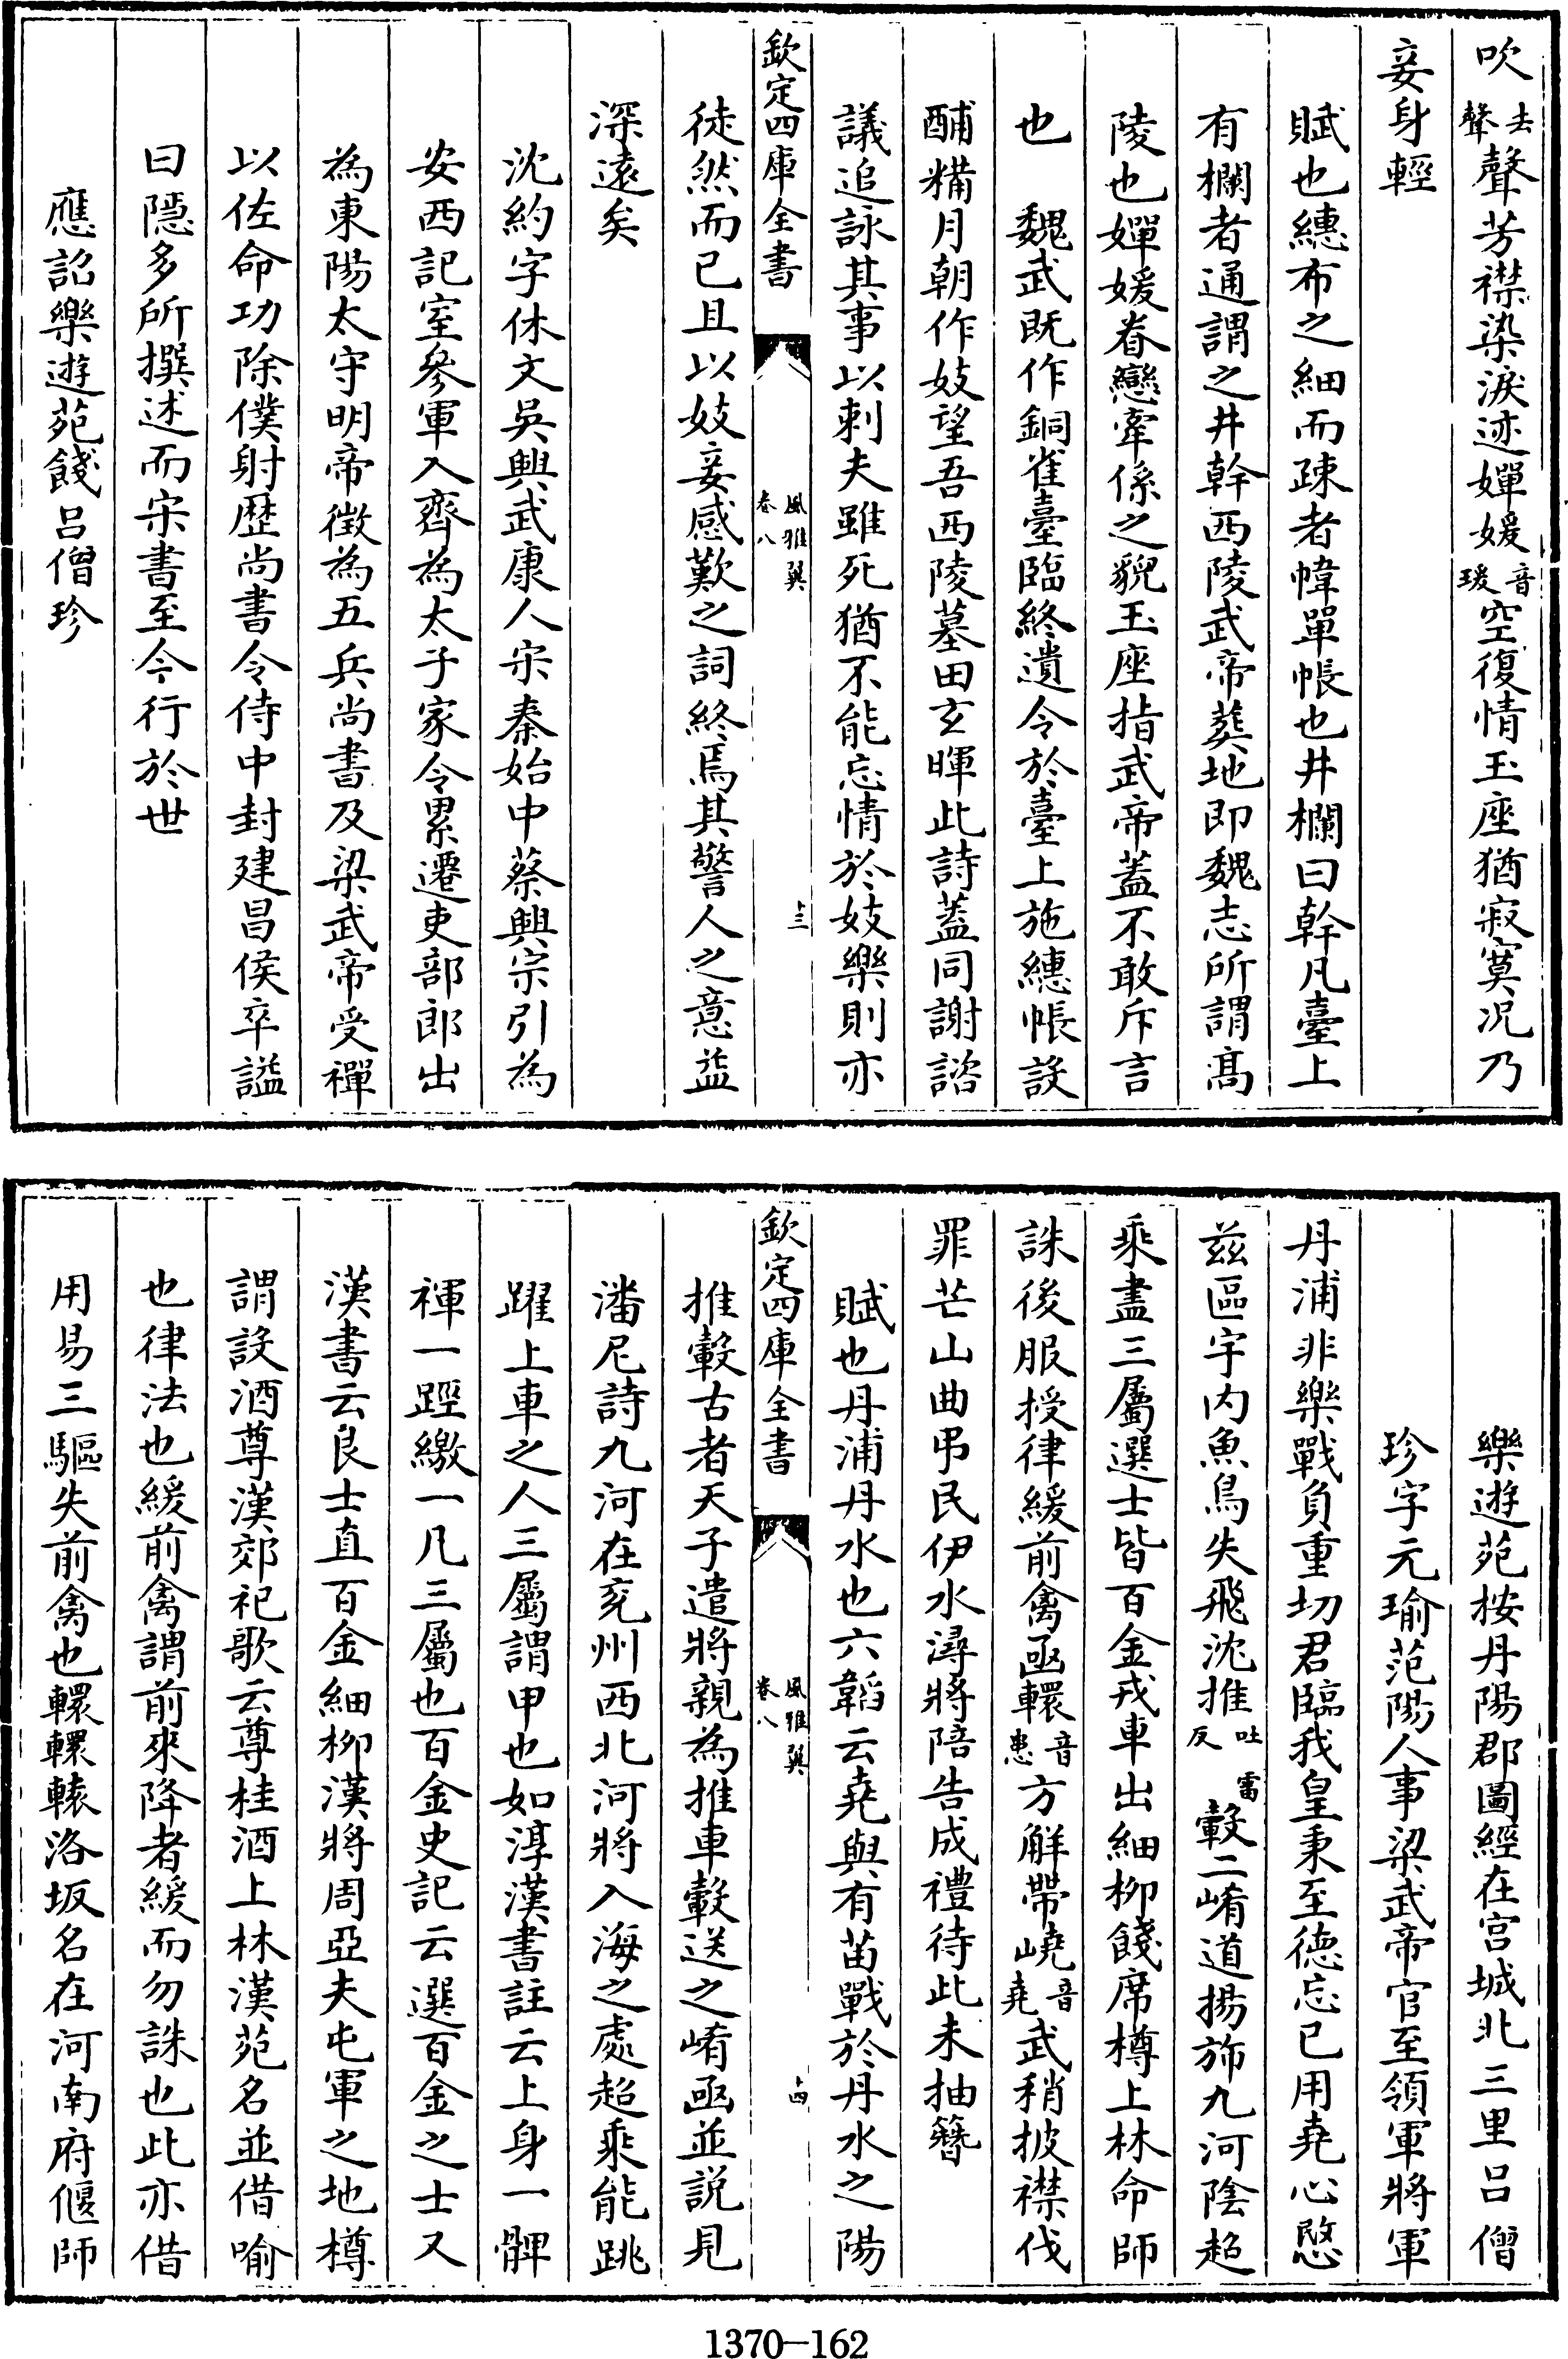 吹去聲聲芳襟染淚迹嬋媛音瑗空復情玉座猶寂寞况乃
妾身輕
賦也繐布之細而疎者幃單帳也井欄曰幹凡臺上
有欄者通謂之井幹西陵武帝葬地即魏志所謂髙
陵也嬋媛眷戀牽係之貌玉座指武帝蓋不敢斥言
也　魏武既作銅雀臺臨終遺令於臺上施繐帳設
酺糒月朝作妓望吾西陵墓田玄暉此詩蓋同謝諮
議追詠其事以刺夫雖死猶不能忘情於妓樂則亦
欽定四庫全書
風雅翼
卷八
十三
徒然而已且以妓妾感歎之詞終焉其警人之意益
深遠矣
沈約字休文吳興武康人宋秦始中蔡興宗引為
安西記室參軍入齊為太子家令累遷吏部郎出
為東陽太守明帝徴為五兵尚書及梁武帝受禪
以佐命功除僕射歴尚書令侍中封建昌侯卒謚
曰隱多所撰述而宋書至今行於世
應詔樂遊苑餞吕僧珍
樂遊苑按丹陽郡圖經在宫城北三里吕僧
珍字元瑜范陽人事梁武帝官至領軍將軍
丹浦非樂戰負重切君臨我皇秉至德忘已用堯心愍
兹區宇内魚鳥失飛沈推吐雷反轂二崤道揚斾九河陰超
乘盡三屬選士皆百金戎車出細柳餞席樽上林命師
誅後服授律緩前禽函轘音患方解帶嶢音堯武稍披襟伐
罪芒山曲弔民伊水潯將陪告成禮待此未抽簪
賦也丹浦丹水也六韜云堯與有苗戰於丹水之陽
欽定四庫全書
風雅翼
卷八
十四
推轂古者天子遣將親為推車轂送之崤函並説見
潘尼詩九河在兖州西北河將入海之處超乘能跳
躍上車之人三屬謂甲也如淳漢書註云上身一髀
褌一踁繳一凡三屬也百金史記云選百金之士又
漢書云良士直百金細柳漢將周亞夫屯軍之地樽
謂設酒尊漢郊祀歌云尊桂酒上林漢苑名並借喻
也律法也緩前禽謂前來降者緩而勿誅也此亦借
用易三驅失前禽也轘轘轅洛坂名在河南府偃師
1370-162